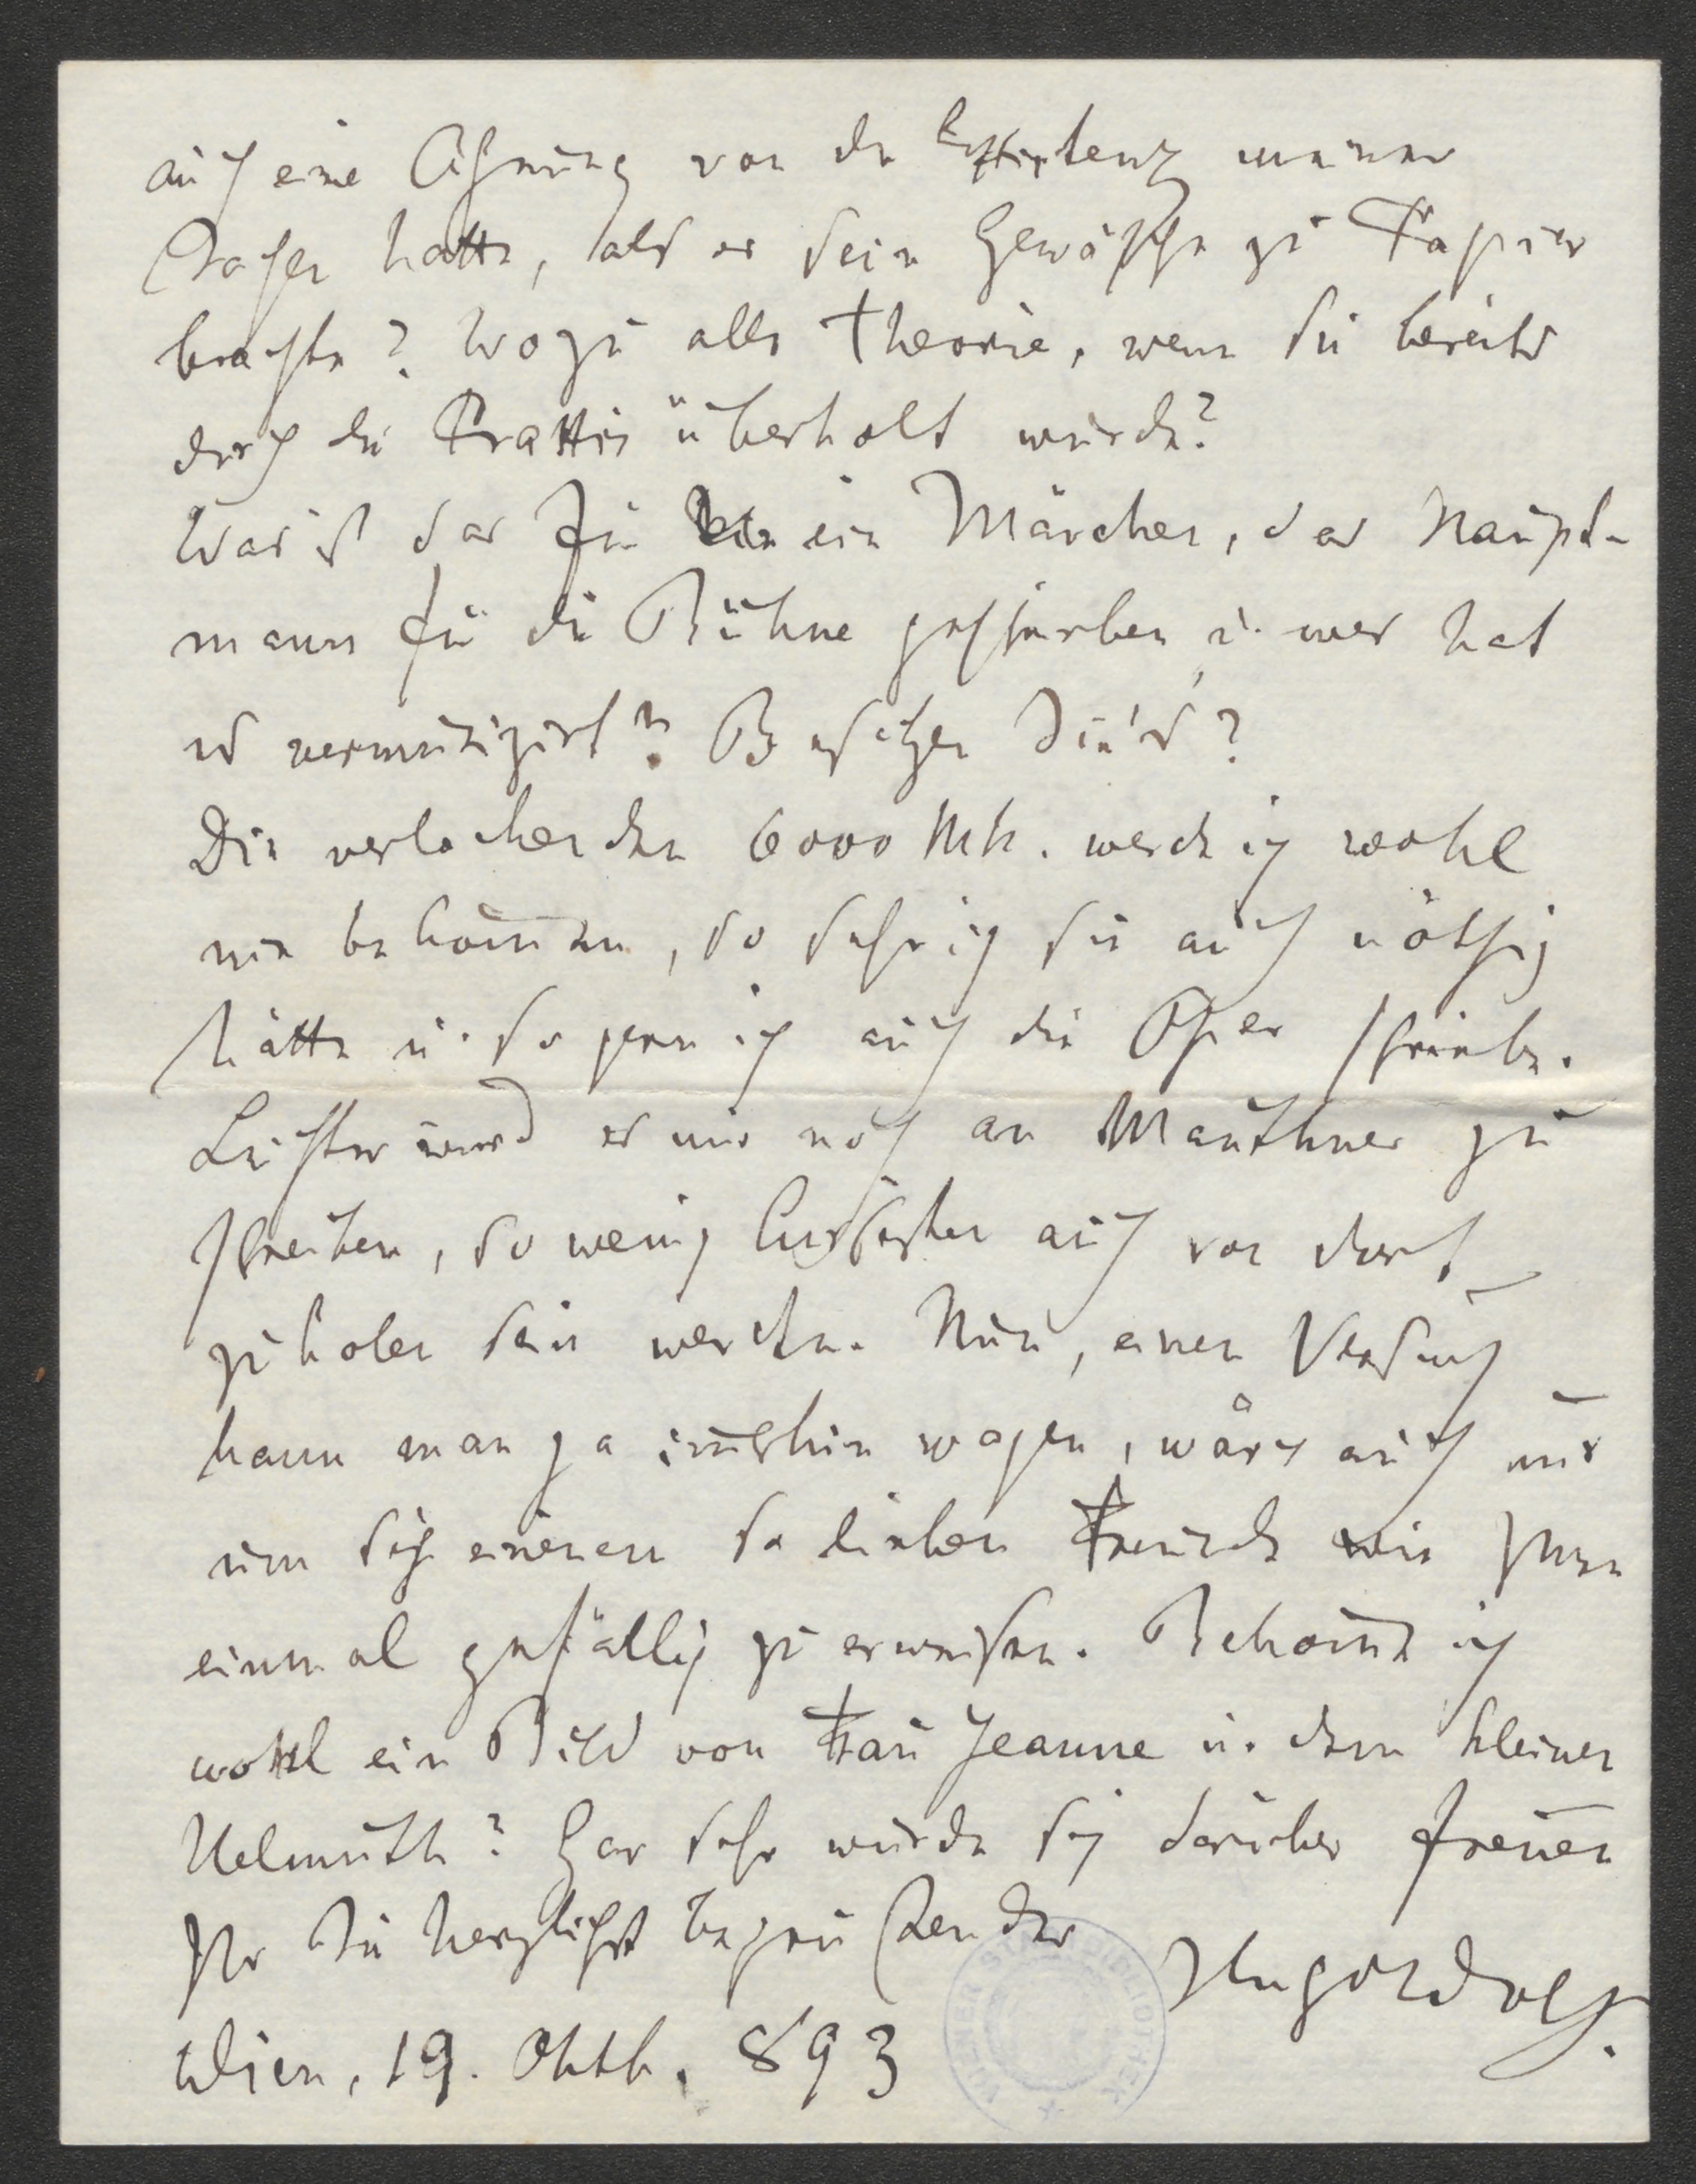 auch eine Ahnung von der Existenz meiner
Sachen hatte, als er sein Gewäsche zu Papier
brachte? Wozu alle Theorie, wenn sie bereits
durch die Praxis überholt wurde?
Was ist das für ein Märchen, das Haupt-
mann für die Bühne geschrieben u. wer hat
es vermusizirt? Besitzen Sie's?
Die verlockenden 6000 Mk. werde ich wohl
nie bekom̅en, so sehr ich sie auch nöthig
hätte u. so gern ich auch die Oper schriebe.
Leichter wird es mir noch an Mauthner zu
schreiben, so wenig Aussichten auch von dort
zu holen sein werden. Nun, einen Versuch
kann man ja im̅erhin wagen, wär's auch nur
um sich einem so lieben Freunde wie Ihnen
einmal gefällig zu erweisen. Bekom̅e ich
wohl ein Bild von Frau Jeanne u. dem kleinen
Helmuth? Gar sehr würde sich darüber freuen
Ihr Sie herzlichst begrüßender
Hugo Wolf.
Wien, 19. Oktb. 893